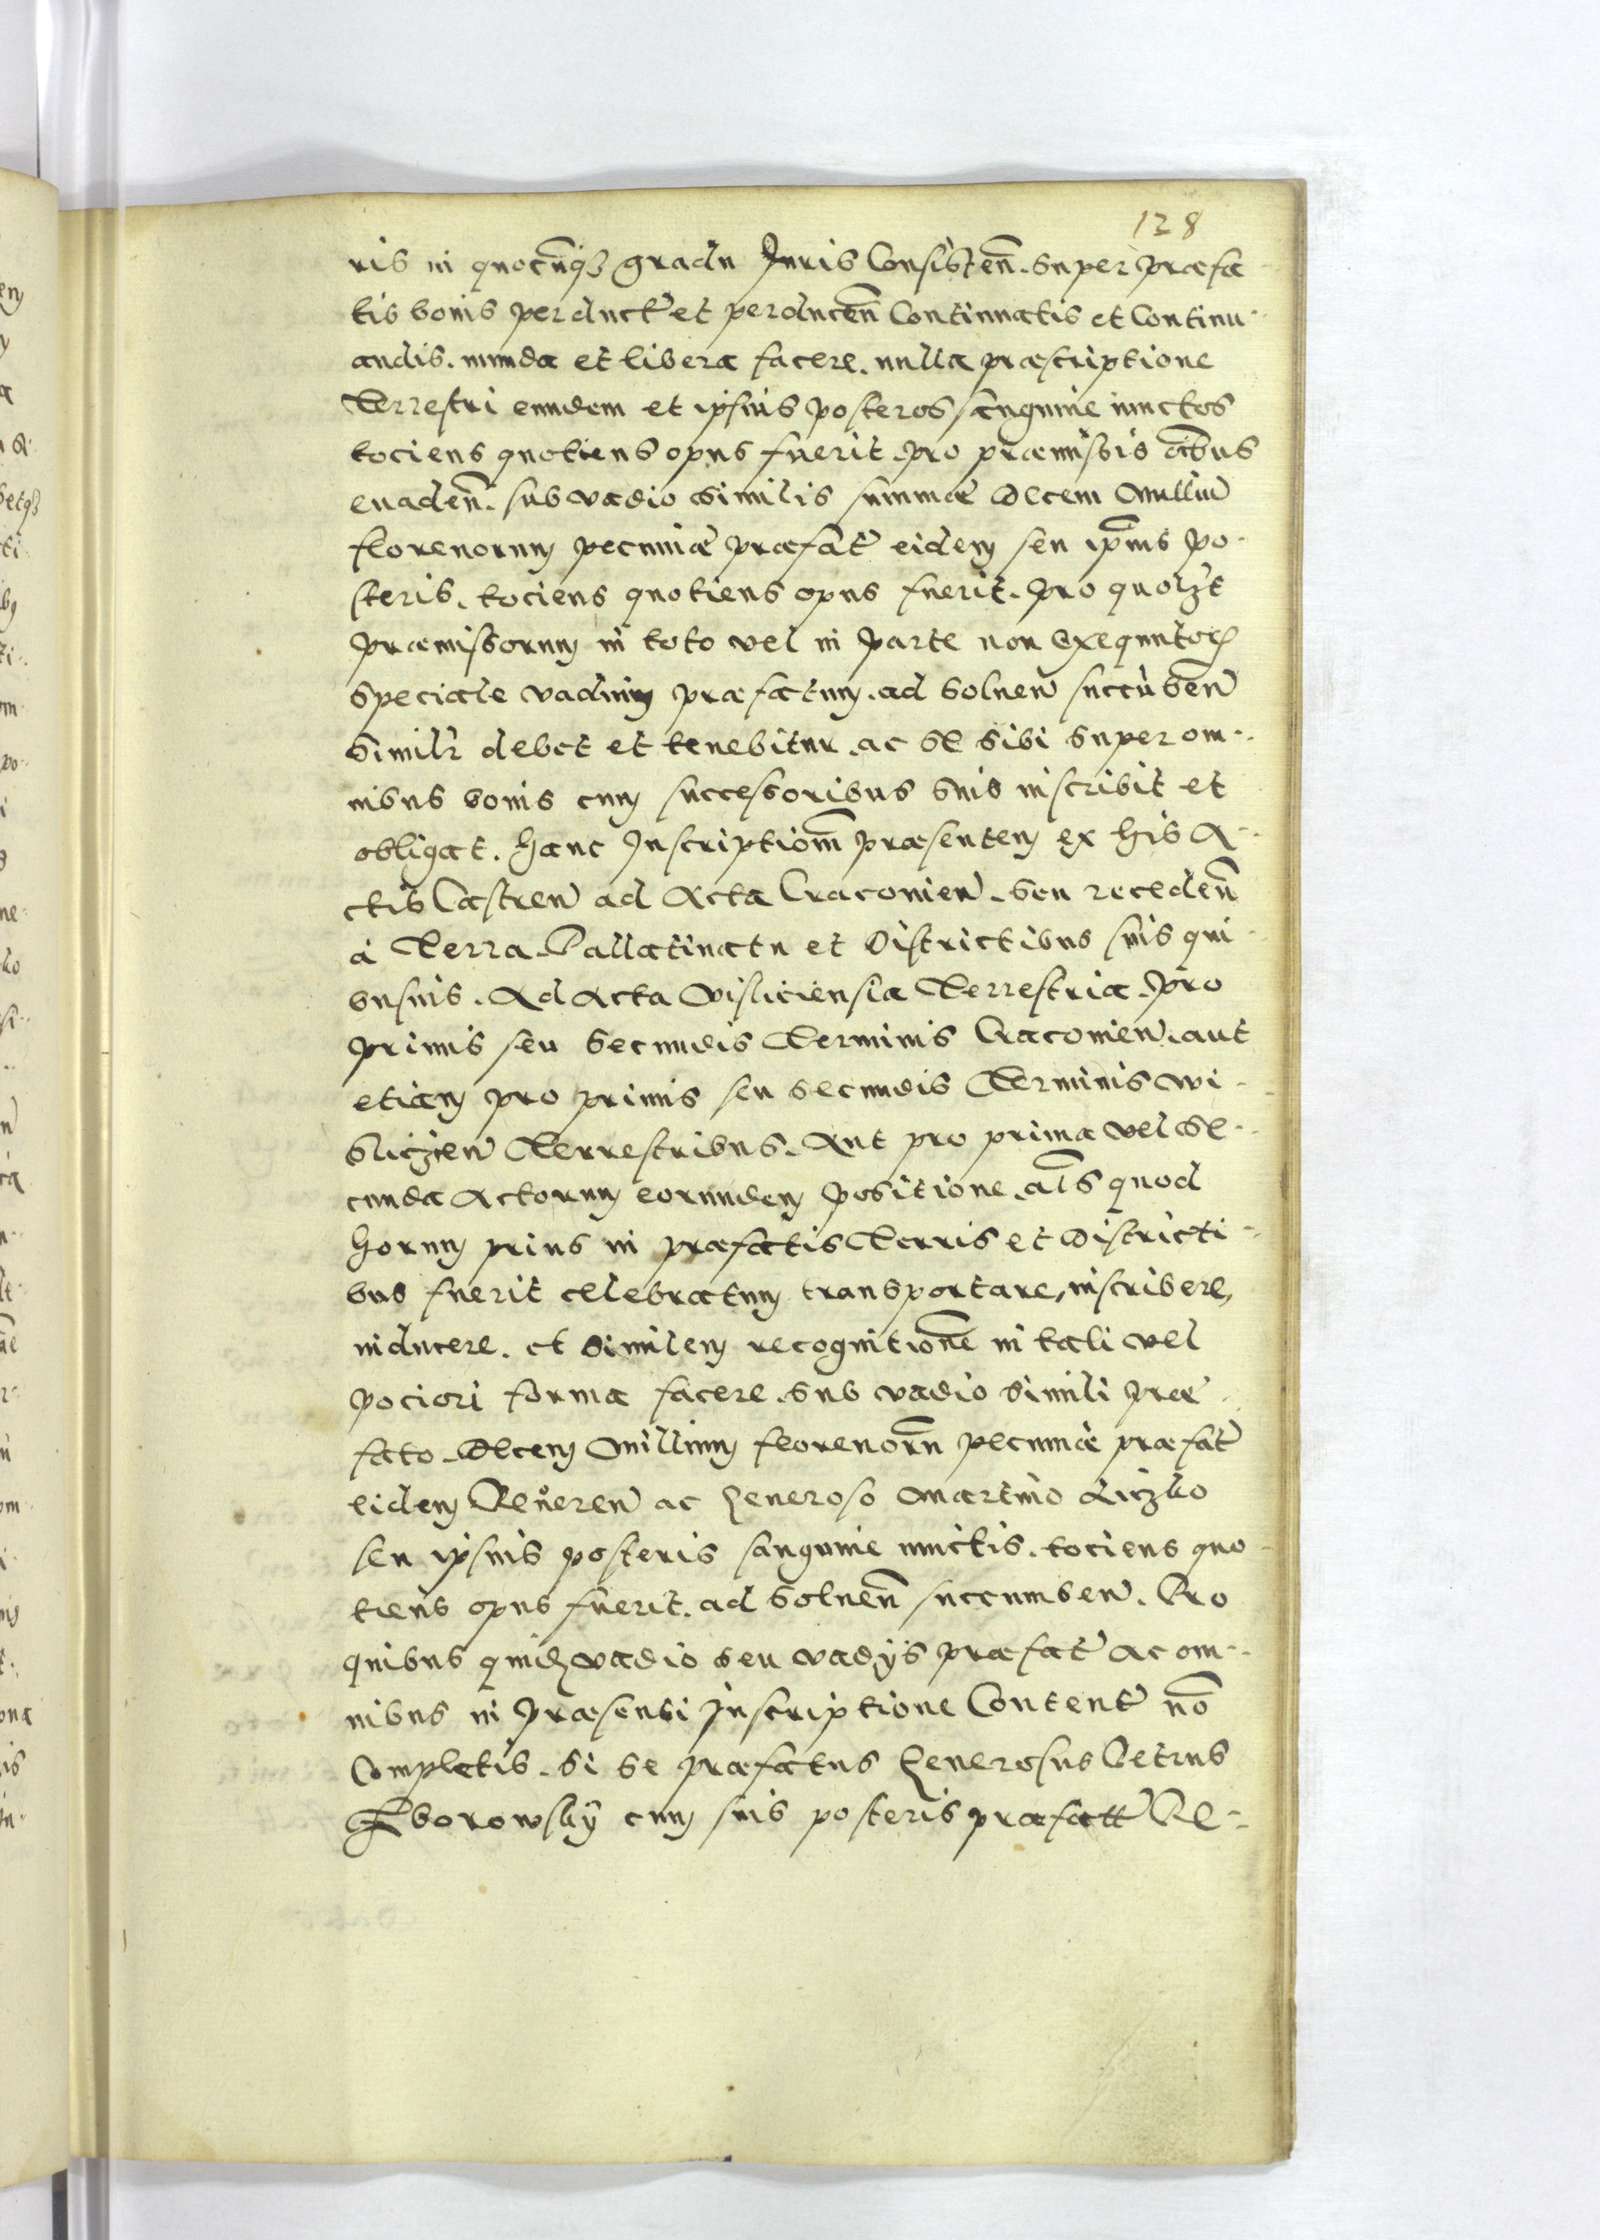 128
ris in quocunq3 gradu Juris Consisten̄. super præfa
tis bonis perduct̄ et perducen̄ Continuatis et Continu-
andis. munda et libera facere. nulla præscriptione
Terrestri eundem et ipsius posteros sanguine iunctos
tociens quotiens opus fuerit. pro præmissis oībus
euaden̄. sub vadio similis summæ Decem Milliū
florenorum pecuniæ præfat̄ eidem seu ipīus po-
steris. tociens quotiens opus fuerit. pro quolz̄t
præmissorum in toto vel in parte non exequutor̄
speciale vadium præfatum. ad soluen̄ succūben̄
Similr̄ debet et tenebitur. ac se sibi super om-
nibus bonis cum successoribus suis inscribit et
obligat. Hanc Inscriptionē̄ præsentem ex his A-
ctis Castren̄ ad Acta Cracouien̄. seu receden̄
à Terra Pallatinatu et Districtibus suis qui-
busuis. Ad Acta Visliciensia Terrestria. pro
primis seu secundis Terminis Cracouien̄. aut
etiam pro primis seu secundis Terminis Wi-
slicien̄ Terrestribus. Aut pro prima vel se-
cunda Actorum eorundem positione. als̄ quod
horum prius in præfatis Terris et Districti-
bus fuerit celebratum transportare, inscribere,
inducere. et similem recognitionē in tali vel
pociori forma facere. sub vadio simili præ-
fato. Decem Millium florenorū pecuniæ præfat̄
eidem Reueren̄ ac Generoso Martino
seu ipsius posteris sanguine iunctis. tociens quo-
tiens opus fuerit. ad soluen̄ succumben̄. Pro
quibus quid vadio seu vadijs præfat̄ ac om-
nibus in præsenti Inscriptione Content̄ nō
Completis. si se præfatus Generosus Petrus
Zborowskÿ cum suis posteris præfatt̄ Re-